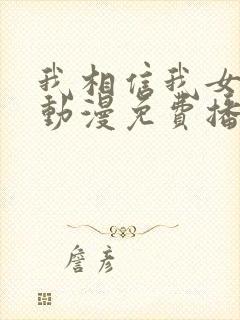 我相信我女
動漫免費播
詹彥